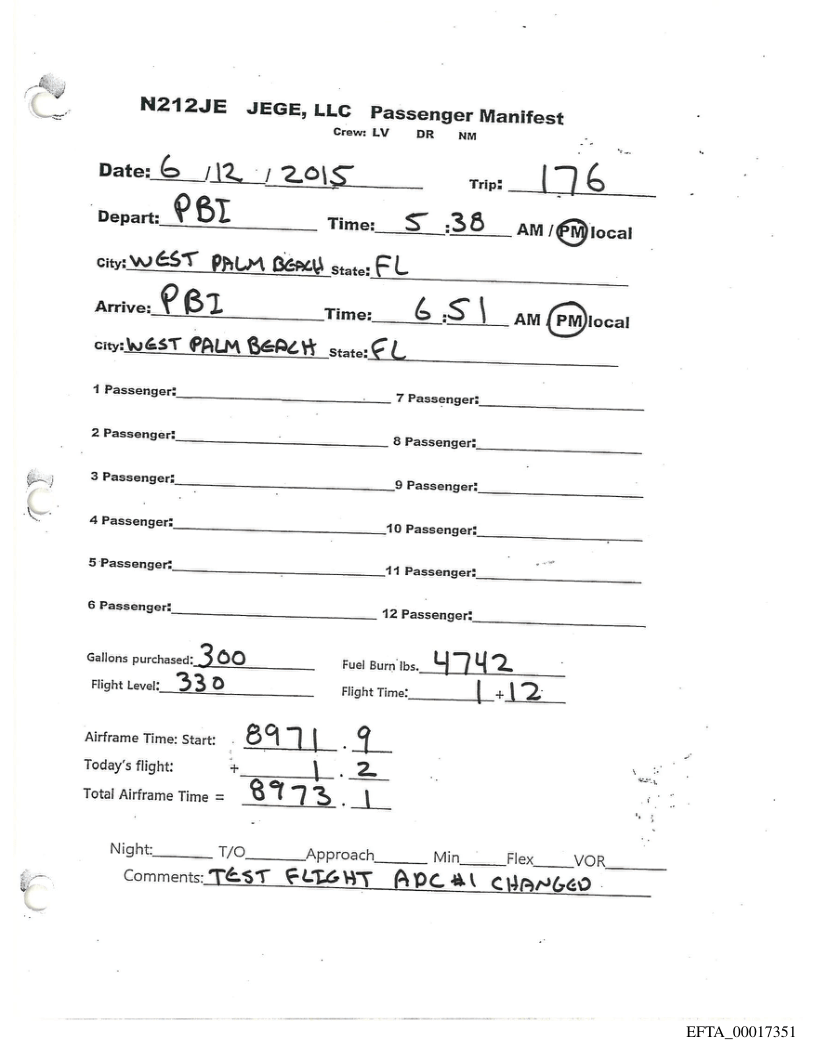 N212JE JEGE, LLC Passenger Manifest
Crew: LV DR NM
Date: 6 / 12 / 2015 Trip: 176
Depart: PBI Time: 5 :38 AM / PM local
City: WEST PALM BEACH State: FL
Arrive: PBI Time: 6 :51 AM / PM local
City: WEST PALM BEACH State: FL
1 Passenger: 7 Passenger:
2 Passenger: 8 Passenger:
3 Passenger: 9 Passenger:
4 Passenger: 10 Passenger:
5 Passenger: 11 Passenger:
6 Passenger: 12 Passenger:
Gallons purchased: 300 Fuel Burn lbs. 4742
Flight Level: 330 Flight Time: 1 + 12
Airframe Time: Start: 8971 . 9
Today's flight: + 1 . 2
Total Airframe Time = 8973 . 1
Night: T/O Approach Min Flex VOR
Comments: TEST FLIGHT ADC #1 CHANGED
EFTA_00017351